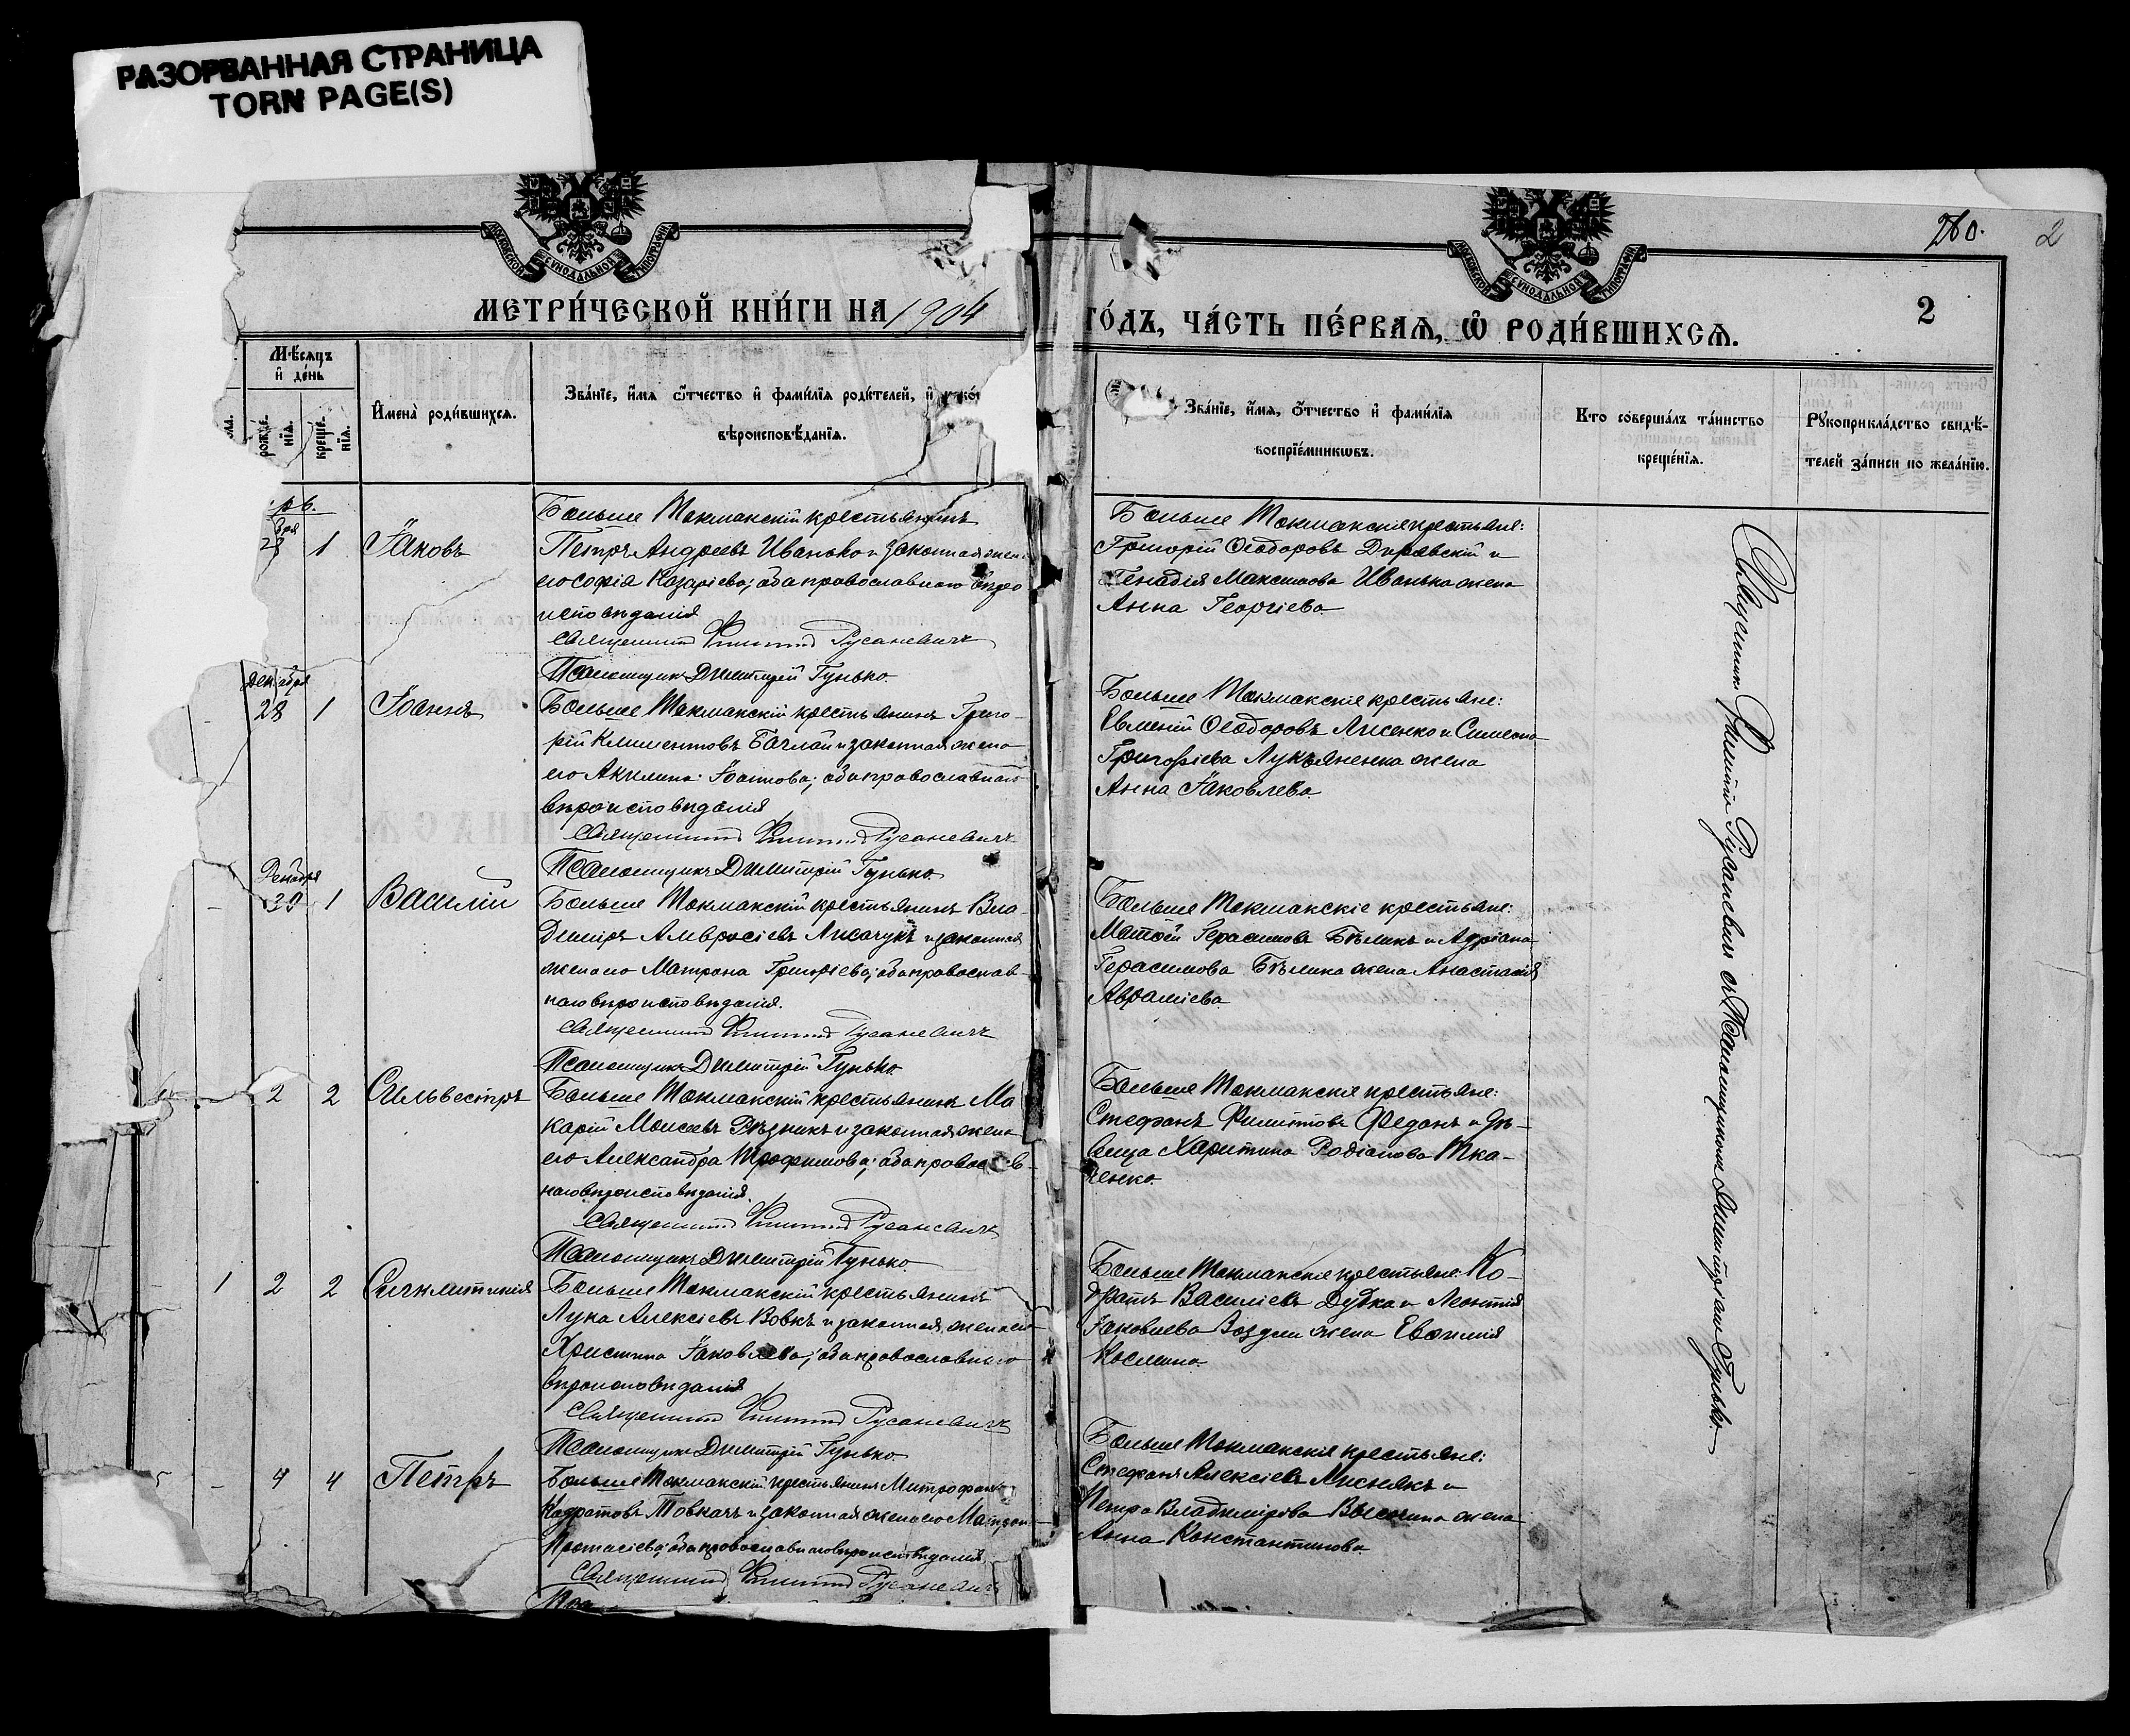 РАЗОРВАННАЯ СТРАНИЦА
TORN PAGE(S)
МОСКОВСКОЙ СУНОДАЛЬНОЙ ТИПОГРАФІИ
МОСКОВСКОЙ СУНОДАЛЬНОЙ ТИПОГРАФІИ
2
МЕТРИ́ЧЕСКОЙ КНИ́ГИ НА 1904
ГО́ДЪ, ЧА́СТЬ ПЕ́РВАѦ, Ѡ҆ РОДИ́ВШИХСѦ.
2
Мѣ́сѧцъ
и҆ де́нь
рожде́-
нїѧ.
креще́-
нїѧ.
И҆мена̀ роди́вшихсѧ.
Зва́нїе, и҆́мѧ ѻ҆́тчество и҆ фами́лїѧ роди́телей, и҆
вѣроисповѣ́данїѧ.
Зва́нїе, и҆́мѧ, ѻ҆́тчество и҆ фами́лїѧ
воспрїе́мникѡвъ.
Кто соверша́лъ та́инство
креще́нїѧ.
Рꙋкоприкла́дство свидѣ́-
телей за́писи по жела́нїю.
28 1 Іаковъ
Больше Токмакскій крестьянинъ
Петръ Андреевъ Иванько и законная жен
его Софія Назаріева; оба православнаго вѣро
исповѣданія
Священникъ Филиппъ Русаневичъ
Псаломщикъ Димитрій Гунько.
Больше Токмакскіе крестьяне:
Григорій Ѳеодоровъ Диравскій и
Генадія Максимова Иванька жена
Анна Георгіева
Декабря
28 1 Іоаннъ
Больше Токмакскій крестьянинъ Григо-
рій Климентовъ Бачлай и законная жена
его Акилина Іоаннова; оба православнаго
вѣроисповѣданія
Священникъ Филиппъ Русаневичъ
Псаломщикъ Димитрій Гунько.
Больше Токмакскіе крестьяне:
Евменій Ѳеодоровъ Лисенко и Симеона
Григоріева Лукьяненка жена
Анна Іаковлева.
Декабря
- 30 1 Василій
Больше Токмакскій крестьянинъ Вла-
диміръ Амвросіевъ Лисачукъ и законная
жена его Матрона Григоріева; оба православ-
наго вѣроисповѣданія.
Священникъ Филиппъ Русаневичъ
Псаломщикъ Димитрій Гунько.
Больше Токмакскіе крестьяне:
Матѳій Герасимовъ Бѣликъ и Адріана
Герасимова Бѣлика жена Анастасія
Авраміева
- 2 2 Сильвестръ
Больше Токмакскій крестьянинъ Ма
карій Моисеевъ Рѣзникъ и законная жена
его Александра Трофимова; оба православ-
наго вѣроисповѣданія.
Священникъ Филиппъ Русаневичъ
Псаломщикъ Димитрій Гунько.
Больше Токмакскіе крестьяне:
Стефанъ Филиптовъ Феданъ и дѣ-
вица Харитина Родіонова Тка-
ченко.
1 2 2 Синклитикія
Больше Токмакскій крестьянинъ
Лука Алексіевъ Вовкъ и законная жена его
Христина Іаковлева; оба православнаго
вѣроисповѣданія
Священникъ Филиппъ Русаневичъ
Псаломщикъ Димитрій Гунько.
Больше Токмакскіе крестьяне: Ко-
дратъ Василіевъ Дубка и Леонтія
Іаковлева жена Евѳимія
Косьмина.
- 4 4 Петръ
Больше Токмакскій крестьянинъ Митрофанъ
Кодратовъ Товкачъ и законная жена его Матрон
Протасіева; оба православнаго вѣроисповѣданія
Священникъ Филиппъ Русаневичъ
Больше Токмакскіе крестьяне:
Стефанъ Алексіевъ Лиснякъ и
Петра Владимірова жена
Анна Константинова.
Священникъ Филиппъ Русаневичъ съ Псаломщикомъ Димитріемъ Гунько.